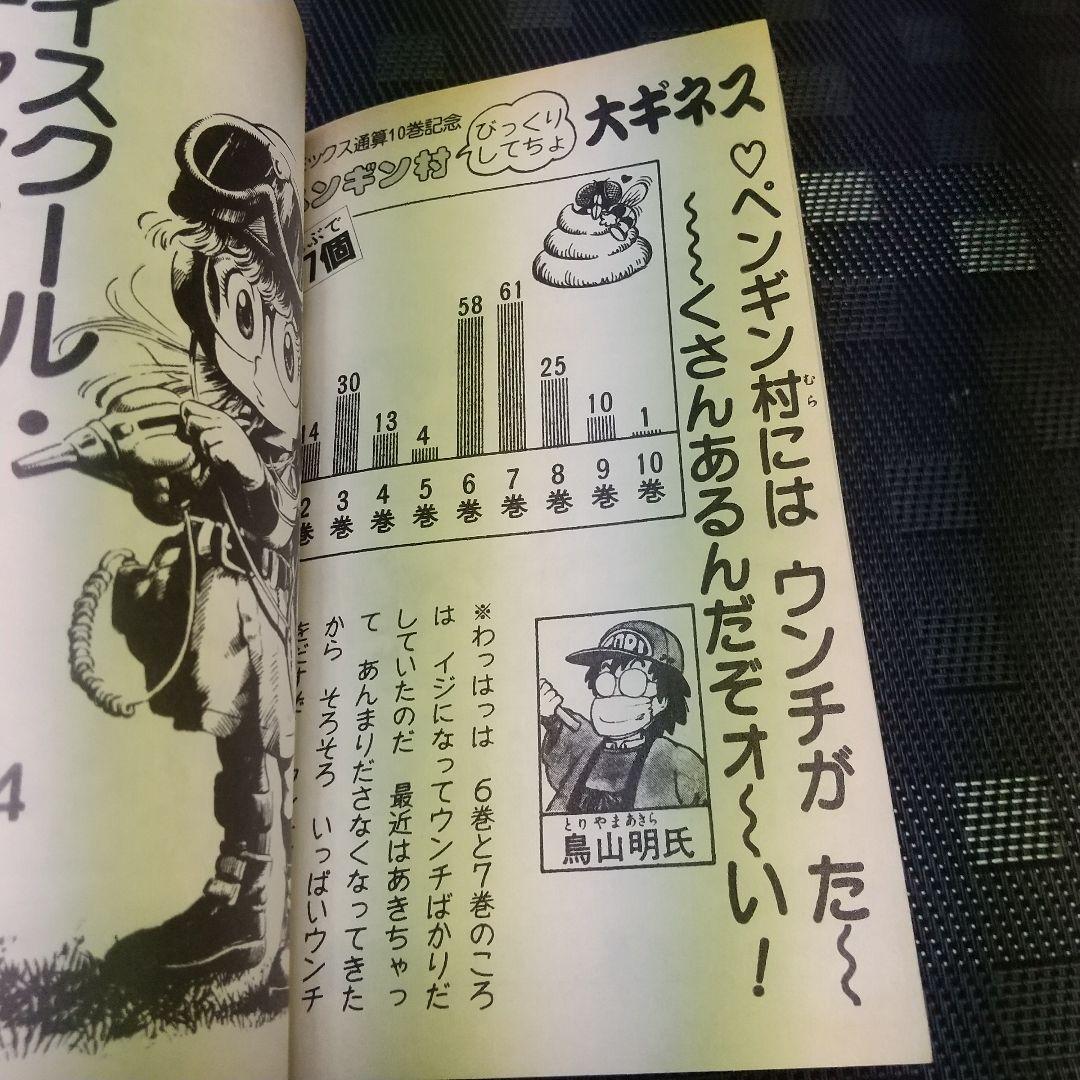 ィスクール・
4
ミックス通算10巻記念
ペンギン村
びっくり
してちょ
大ギネス
♡ペンギン村には ウンチが た〜
むら
〜〜くさんあるんだぞォ〜い!
ぶで
7個
14 30 13 4 58 61 25 10 1
2巻 3巻 4巻 5巻 6巻 7巻 8巻 9巻 10巻
とりやまあきら
鳥山明氏
※わっはっは 6巻と7巻のころ
は イジになってウンチばかりだ
していたのだ 最近はあきちゃっ
て あんまりださなくなってきた
から そろそろ いっぱいウンチ